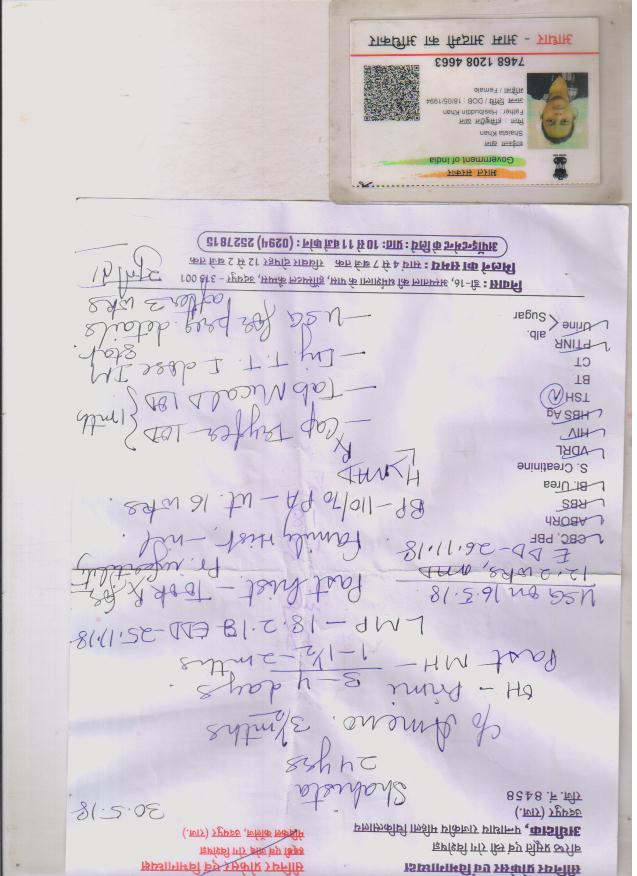 सीनियर प्रोफेसर एवं विभागाध्यक्ष
वरिष्ठ प्रसूति एवं स्त्री रोग विशेषज्ञ
अधीक्षक, पन्नाधाय राजकीय महिला चिकित्सालय
उदयपुर (राज.)
रजि. नं. 8458
सीनियर प्रोफेसर एवं विभागाध्यक्ष
मेडिकल कॉलेज, उदयपुर (राज.)
30.5.18
Shahista
24 yrs
c/o Ameno. 3½ mths
OH - Primi
Past MH - 3-4 days
1-1½-2 mths
LMP - 18.2.18 EDD - 25.11.18
USG on 16.5.18
12.2 wks,
EDD - 26.11.18
Past hist - Took Rx for
Pr. infertility
Family Hist. - nil
BP - 110/70 PA - ut. 16 wks
CBC, PBF
ABORh
RBS
Bl. Urea
S. Creatinine
VDRL
HIV
HBS Ag
TSH (N)
BT
CT
PTINR
Urine < alb. Sugar
Rx
- Cap 1OD
- Tab 1OD
1 mth
- Inj. T.T. I dose IM
Stat
- USG for preg. details
after 3 wks
निवास : डी-16, अस्पताल की धर्मशाला के पास, हॉस्पिटल केम्पस, उदयपुर - 313 001
मिलने का समय : सायं 4 से 7 बजे तक रविवार दोपहर 12 से 2 बजे तक
अपॉइन्टमेन्ट के लिये प्रातः 10 से 11 बजे फोन : (0294) 2527815
भारत सरकार
Government of India
शाईस्ता खान
Shaista Khan
पिता : हसिबुद्दीन खान
Father : Hasibuddin Khan
जन्म तिथि / DOB : 18/05/1994
महिला / Female
7468 1208 4663
आधार - आम आदमी का अधिकार